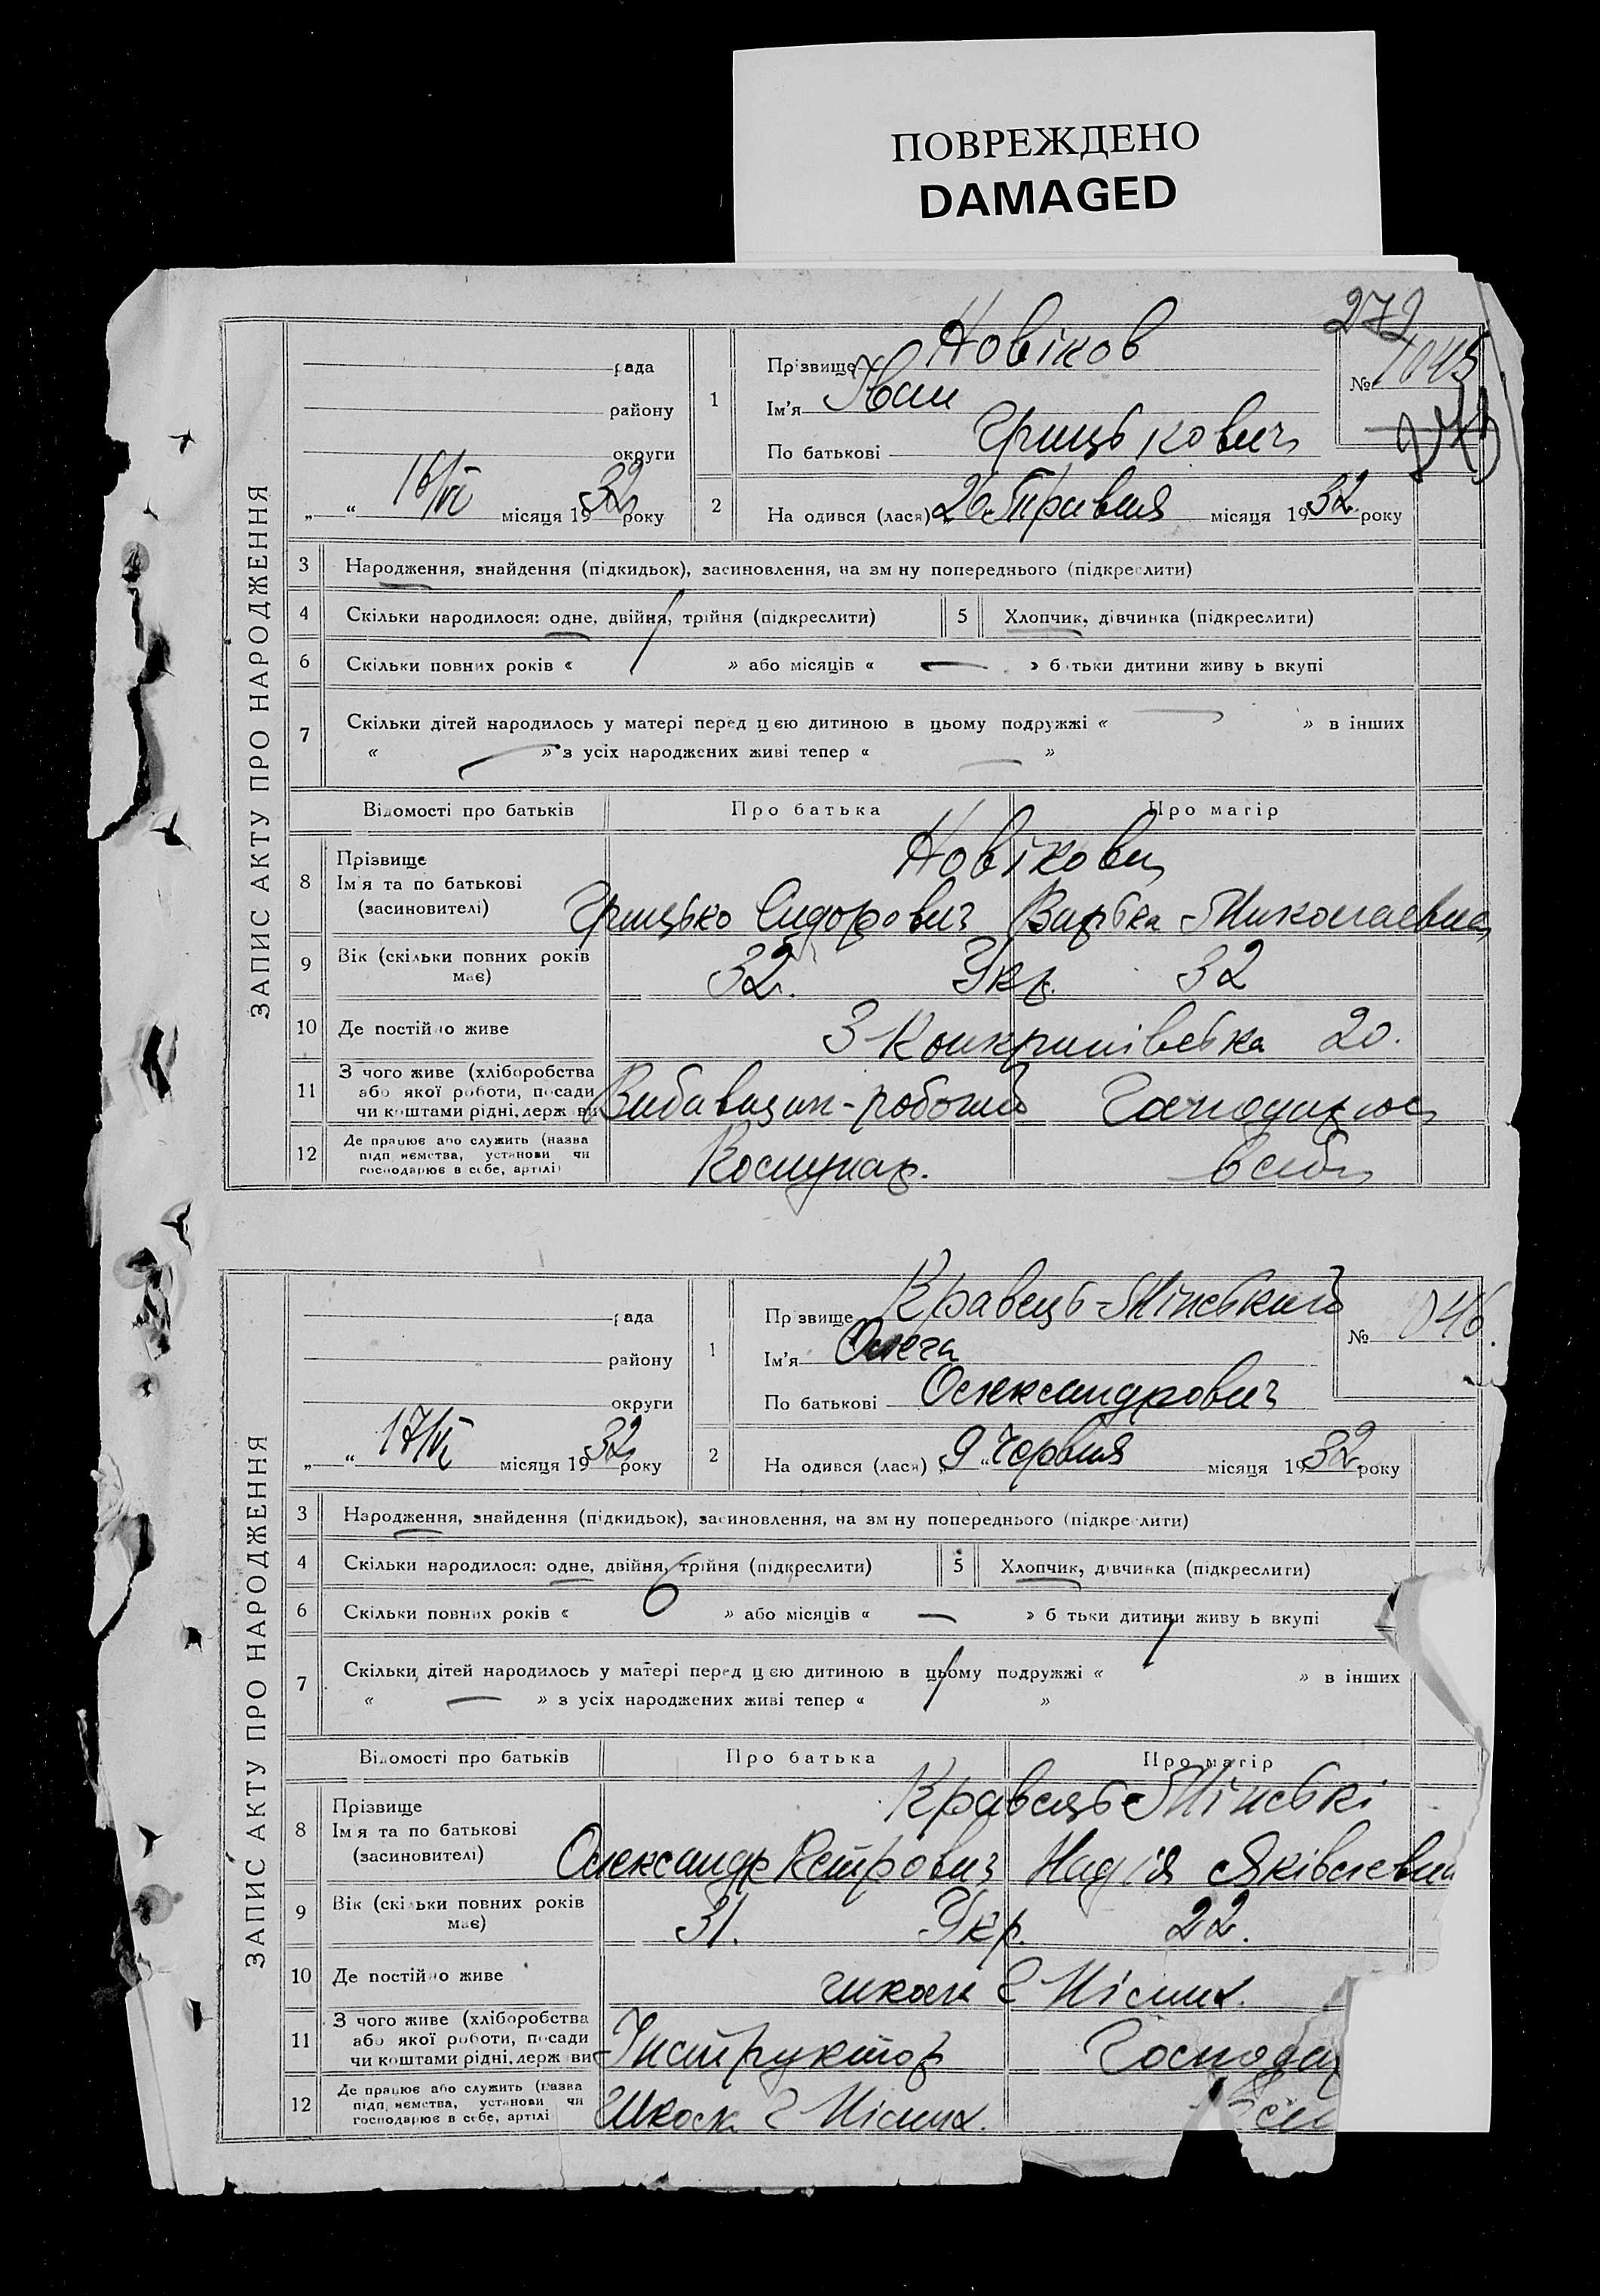 ПОВРЕЖДЕНО
DAMAGED
272
ЗАПИС АКТУ ПРО НАРОДЖЕННЯ
рада
району
округи
„ “ 16/VI місяця 1932 року
1
Прізвище Новіков
Ім'я Іван
По батькові Грицькович
№ 1045
2
На одився (лася) 26 Травня місяця 1932 року
3 Народження, знайдення (підкидьок), засиновлення, на зм ну попереднього (підкреслити)
4 Скільки народилося: одне, двійня, трійня (підкреслити) 5 Хлопчик, дівчинка (підкреслити)
6 Скільки повних років « » або місяців « — » б тьки дитини живу ь вкупі
7 Скільки дітей народилось у матері перед цею дитиною в цьому подружжі « — » в інших
« — » з усіх народжених живі тепер « — »
Відомості про батьків Про батька Про матір
8 Прізвище
Ім'я та по батькові
(засиновителі)
Новікови
Грицько Сидорович Варька Миколаевна
9 Вік (скільки повних років має) 32. Укр. 32
10 Де постійно живе 3 Конкринівська 20.
11 З чого живе (хліборобства
або якої роботи, посади
чи коштами рідні, держ ви
робочий Господарює
12 Де працює або служить (назва
підп иємства, установи чи
господарює в себе, артілі)
Комунар. в себе
ЗАПИС АКТУ ПРО НАРОДЖЕННЯ
рада
району
округи
„ “ 17/VI місяця 1932 року
1
Пр звище Кравець-Мінський
Ім'я Олега
По батькові Олександрович
№ 046.
2
На одився (лася) „9“ Червня місяця 1932 року
3 Народження, знайдення (підкидьок), засиновлення, на зм ну попереднього (підкре лити)
4 Скільки народилося: одне, двійня, трійня (підкреслити) 5 Хлопчик, дівчинка (підкреслити)
6 Скільки повних років « 6 » або місяців « — » б тьки дитини живу ь вкупі
7 Скільки дітей народилось у матері перед цею дитиною в цьому подружжі « 1 » в інших
« — » з усіх народжених живі тепер « 1 »
Відомості про батьків Про батька Про матір
8 Прізвище
Ім'я та по батькові
(засиновителі)
Кравець-Мінські
Олександр Петрович Надія Яківлевна
9 Вік (скі ьки повних років має) 31. Укр. 22.
10 Де постійно живе школи
11 З чого живе (хліборобства
або якої роботи, посади
чи коштами рідні, держ ви
Інструктор Господар
12 Де працює або служить (назва
підп иємства, установи чи
господарює в себе, артілі
Школи